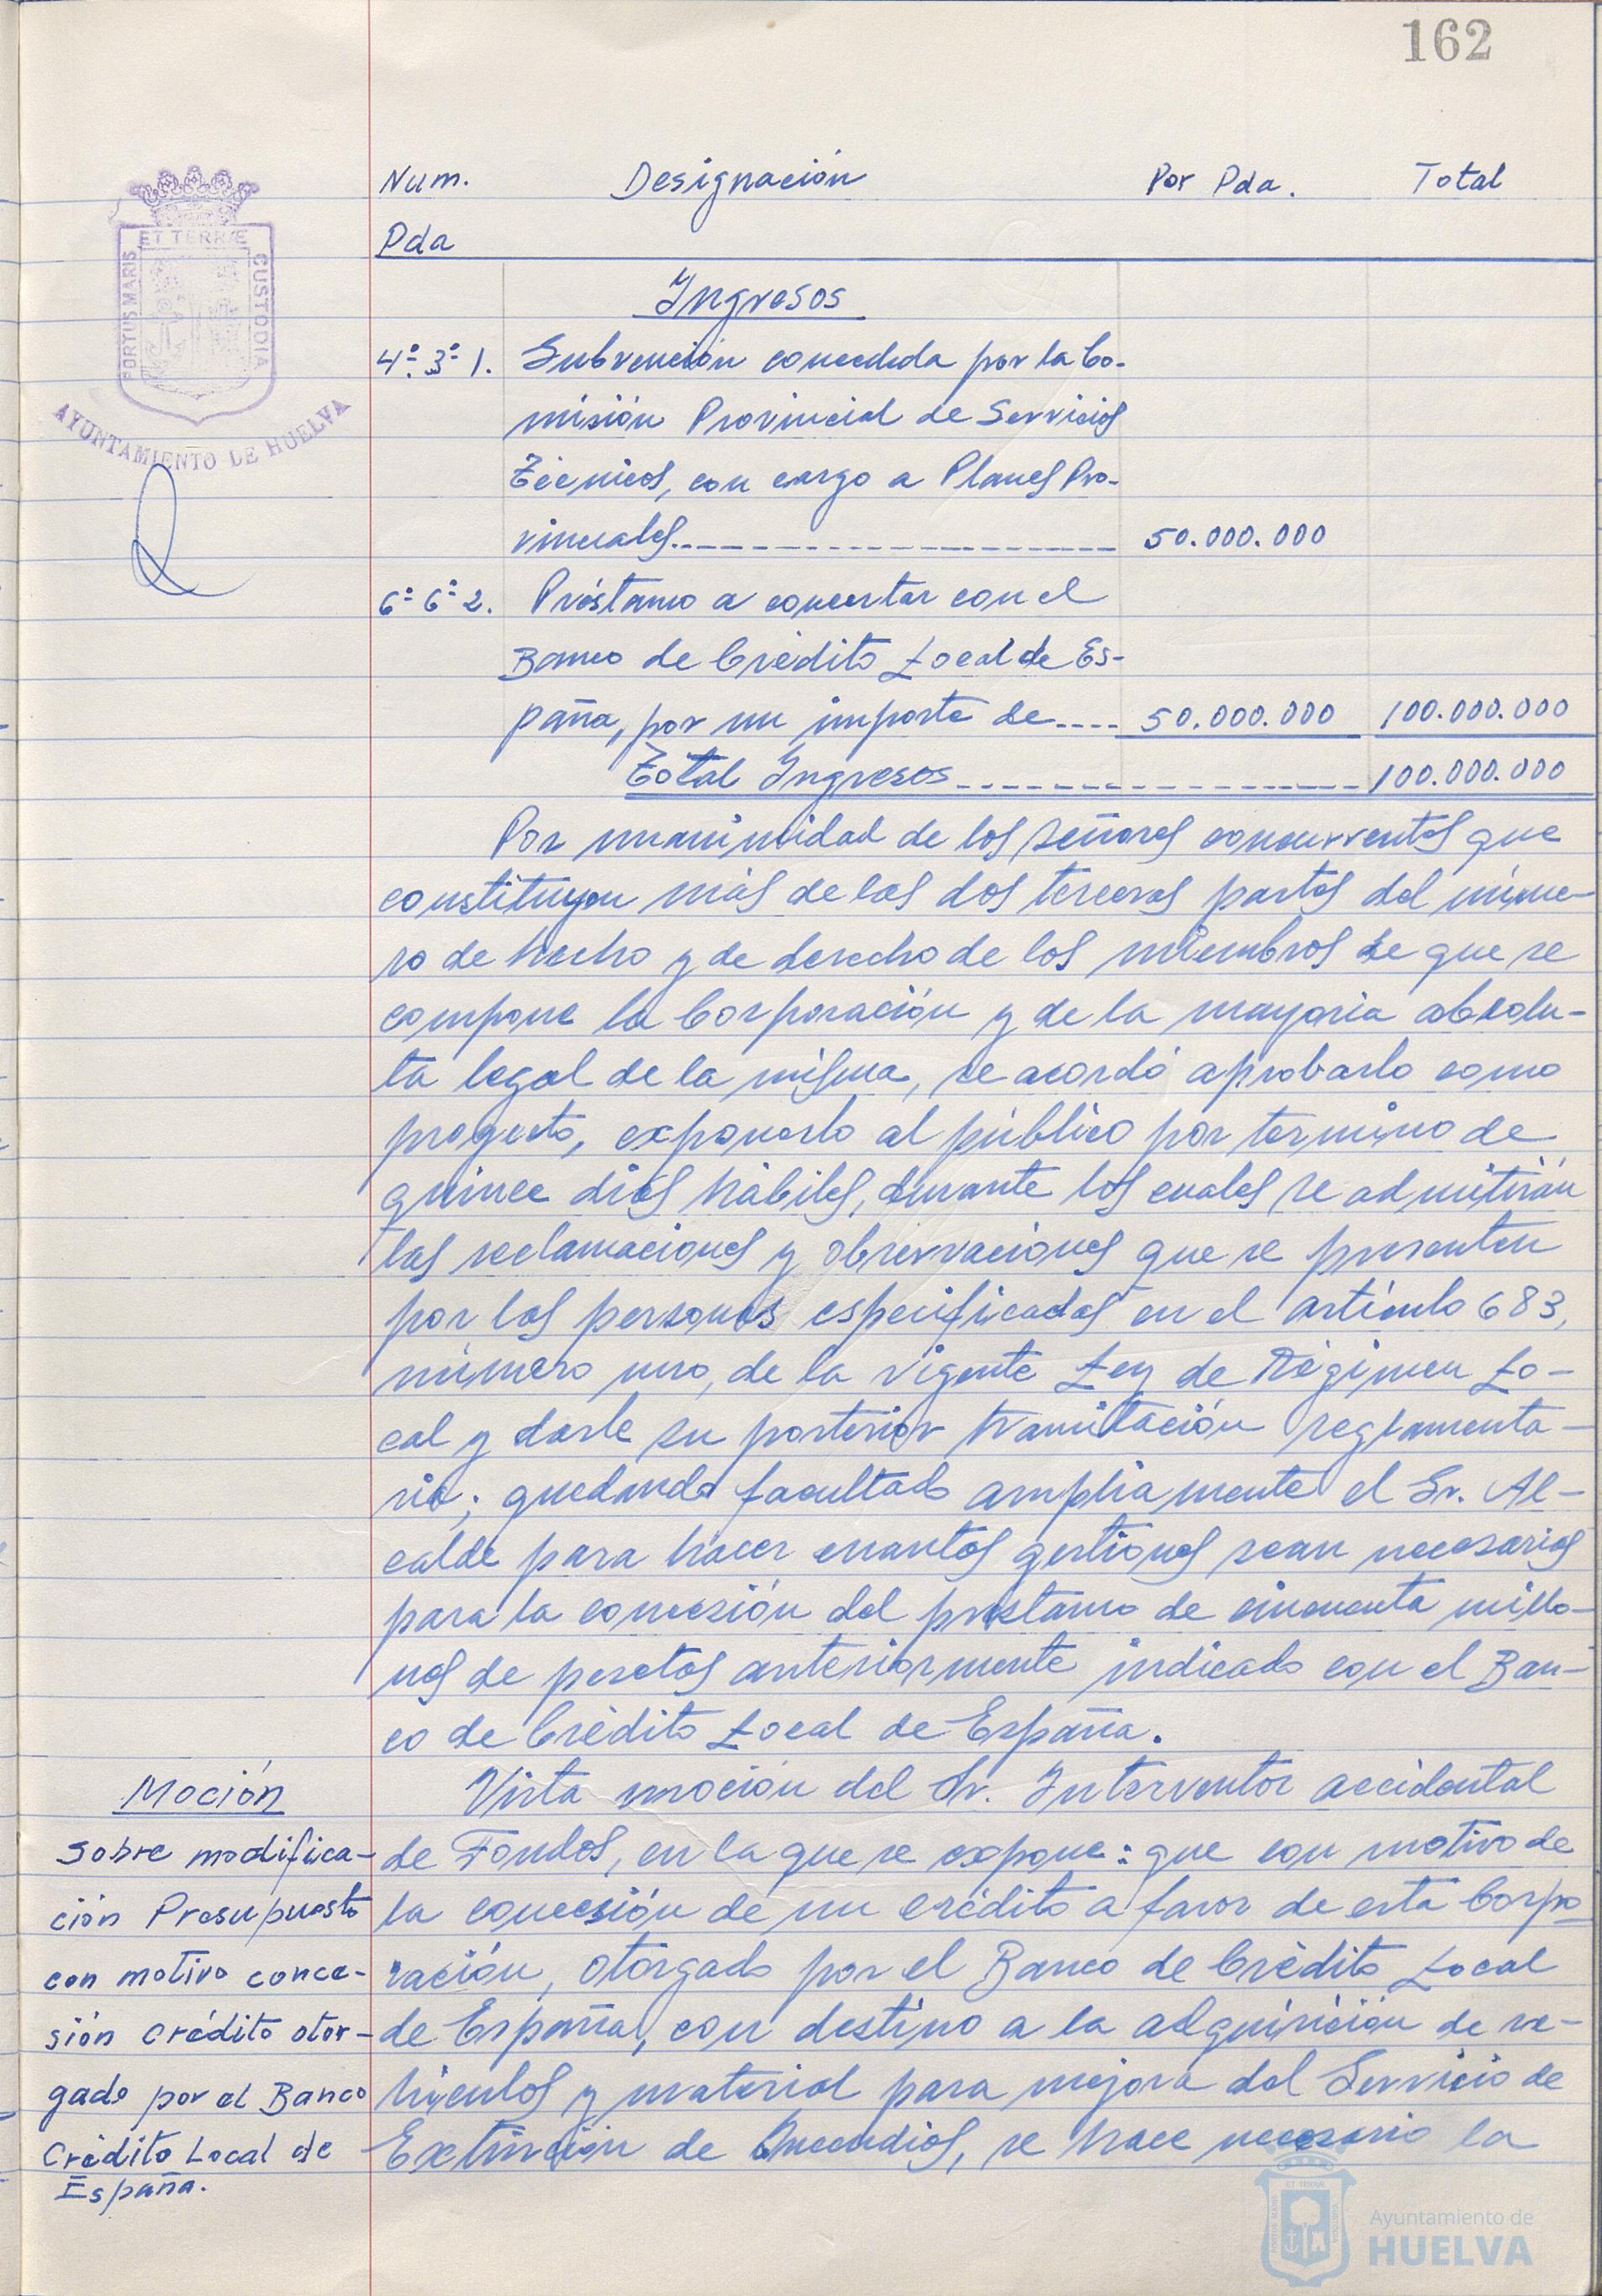 162
Num. Designación Por Pda. Total
Pda
Ingresos
4º 3º 1. Subvención concedida por la Co-
misión Provincial de Servicios
Técnicos, con cargo a Planes Pro-
vinciales 50.000.000
6º 6º 2. Préstamo a concertar con el
Banco de Crédito Local de Es-
paña, por un importe de 50.000.000 100.000.000
Total Ingresos 100.000.000
Por unanimidad de los señores concurrentes que
constituyen más de las dos terceras partes del núme-
ro de hecho y de derecho de los miembros de que se
compone la Corporación y de la mayoria absolu-
ta legal de la misma, se acordó aprobarlo como
proyecto, exponerlo al público por termino de
quince dias hábiles, durante los cuales se admitirán
las reclamaciones y observaciones que se presenten
por las personas especificadas en el artículo 683,
número uno, de la vigente Ley de Régimen Lo-
cal y darle su posterior tramitación reglamenta-
ria; quedando facultado ampliamente el Sr. Al-
calde para hacer cuantas gestiones sean necesarias
para la concesión del préstamo de cincuenta millo-
nes de pesetas anteriormente indicado con el Ban-
co de Crédito Local de España.
Moción
sobre modifica-
ción Presupuesto
con motivo conce-
sión crédito otor-
gado por el Banco
Crédito Local de
España.
Vista moción del Sr. Interventor accidental
de Fondos, en la que se expone: que con motivo de
la concesión de un crédito a favor de esta Corpo
ración, otorgado por el Banco de Crédito Local
de España, con destino a la adquisición de ve-
hículos y material para mejora del Servicio de
Extinción de Incendios, se hace necesario la
PORTUS MARIS ET TERRÆ CUSTODIA
AYUNTAMIENTO DE HUELVA
Ayuntamiento de
HUELVA